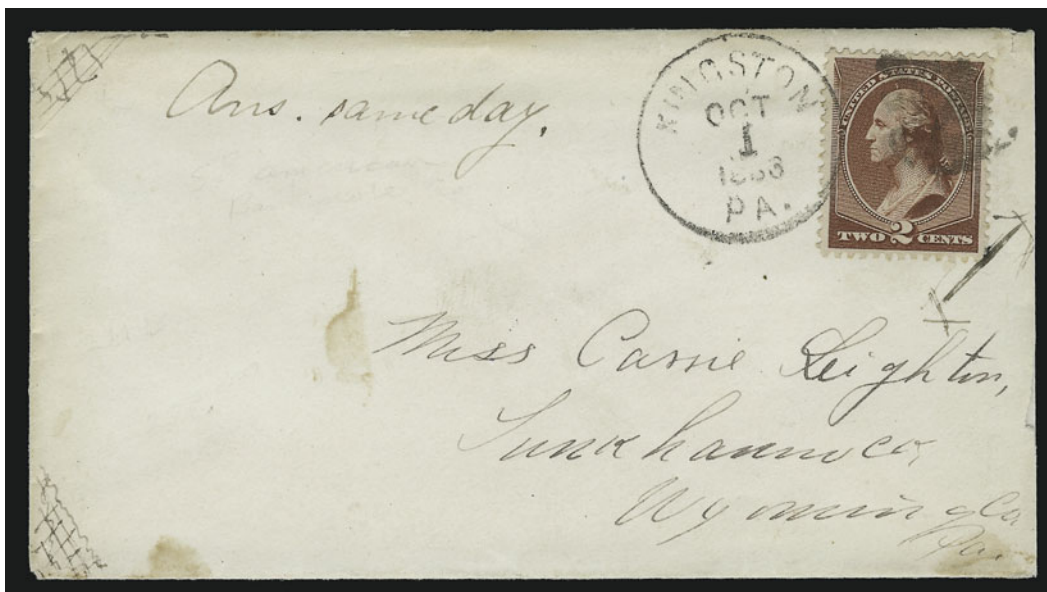 Ans. same day.
KINGSTON
OCT
1
PA.
UNITED STATES POSTAGE
TWO 2 CENTS
Miss Carrie Leighton,
Tunkhannock,
Wyoming Co
Pa.